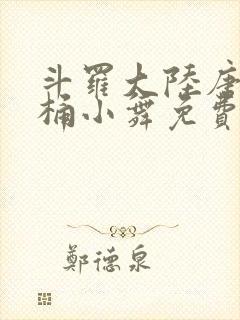 斗羅大陸唐
桶小舞免費
鄭德泉